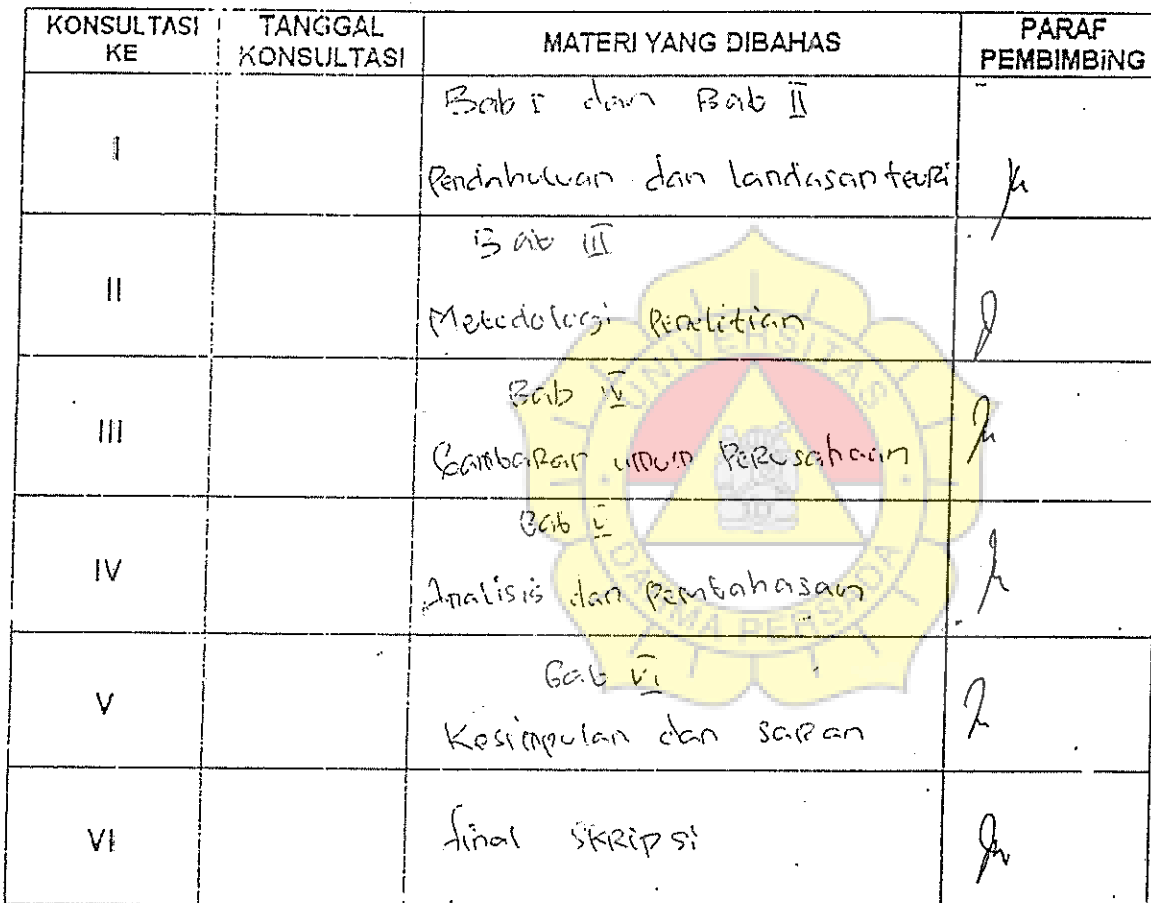 KONSULTASI KE
TANGGAL KONSULTASI
MATERI YANG DIBAHAS
PARAF PEMBIMBING
I
Bab I dan Bab II
Pendahuluan dan landasan teori
II
Bab III
Metodologi Penelitian
III
Bab IV
Gambaran umum Perusahaan
IV
Bab V
Analisis dan Pembahasan
V
Bab VI
Kesimpulan dan saran
VI
final skripsi
UNIVERSITAS
DARMA PERSADA